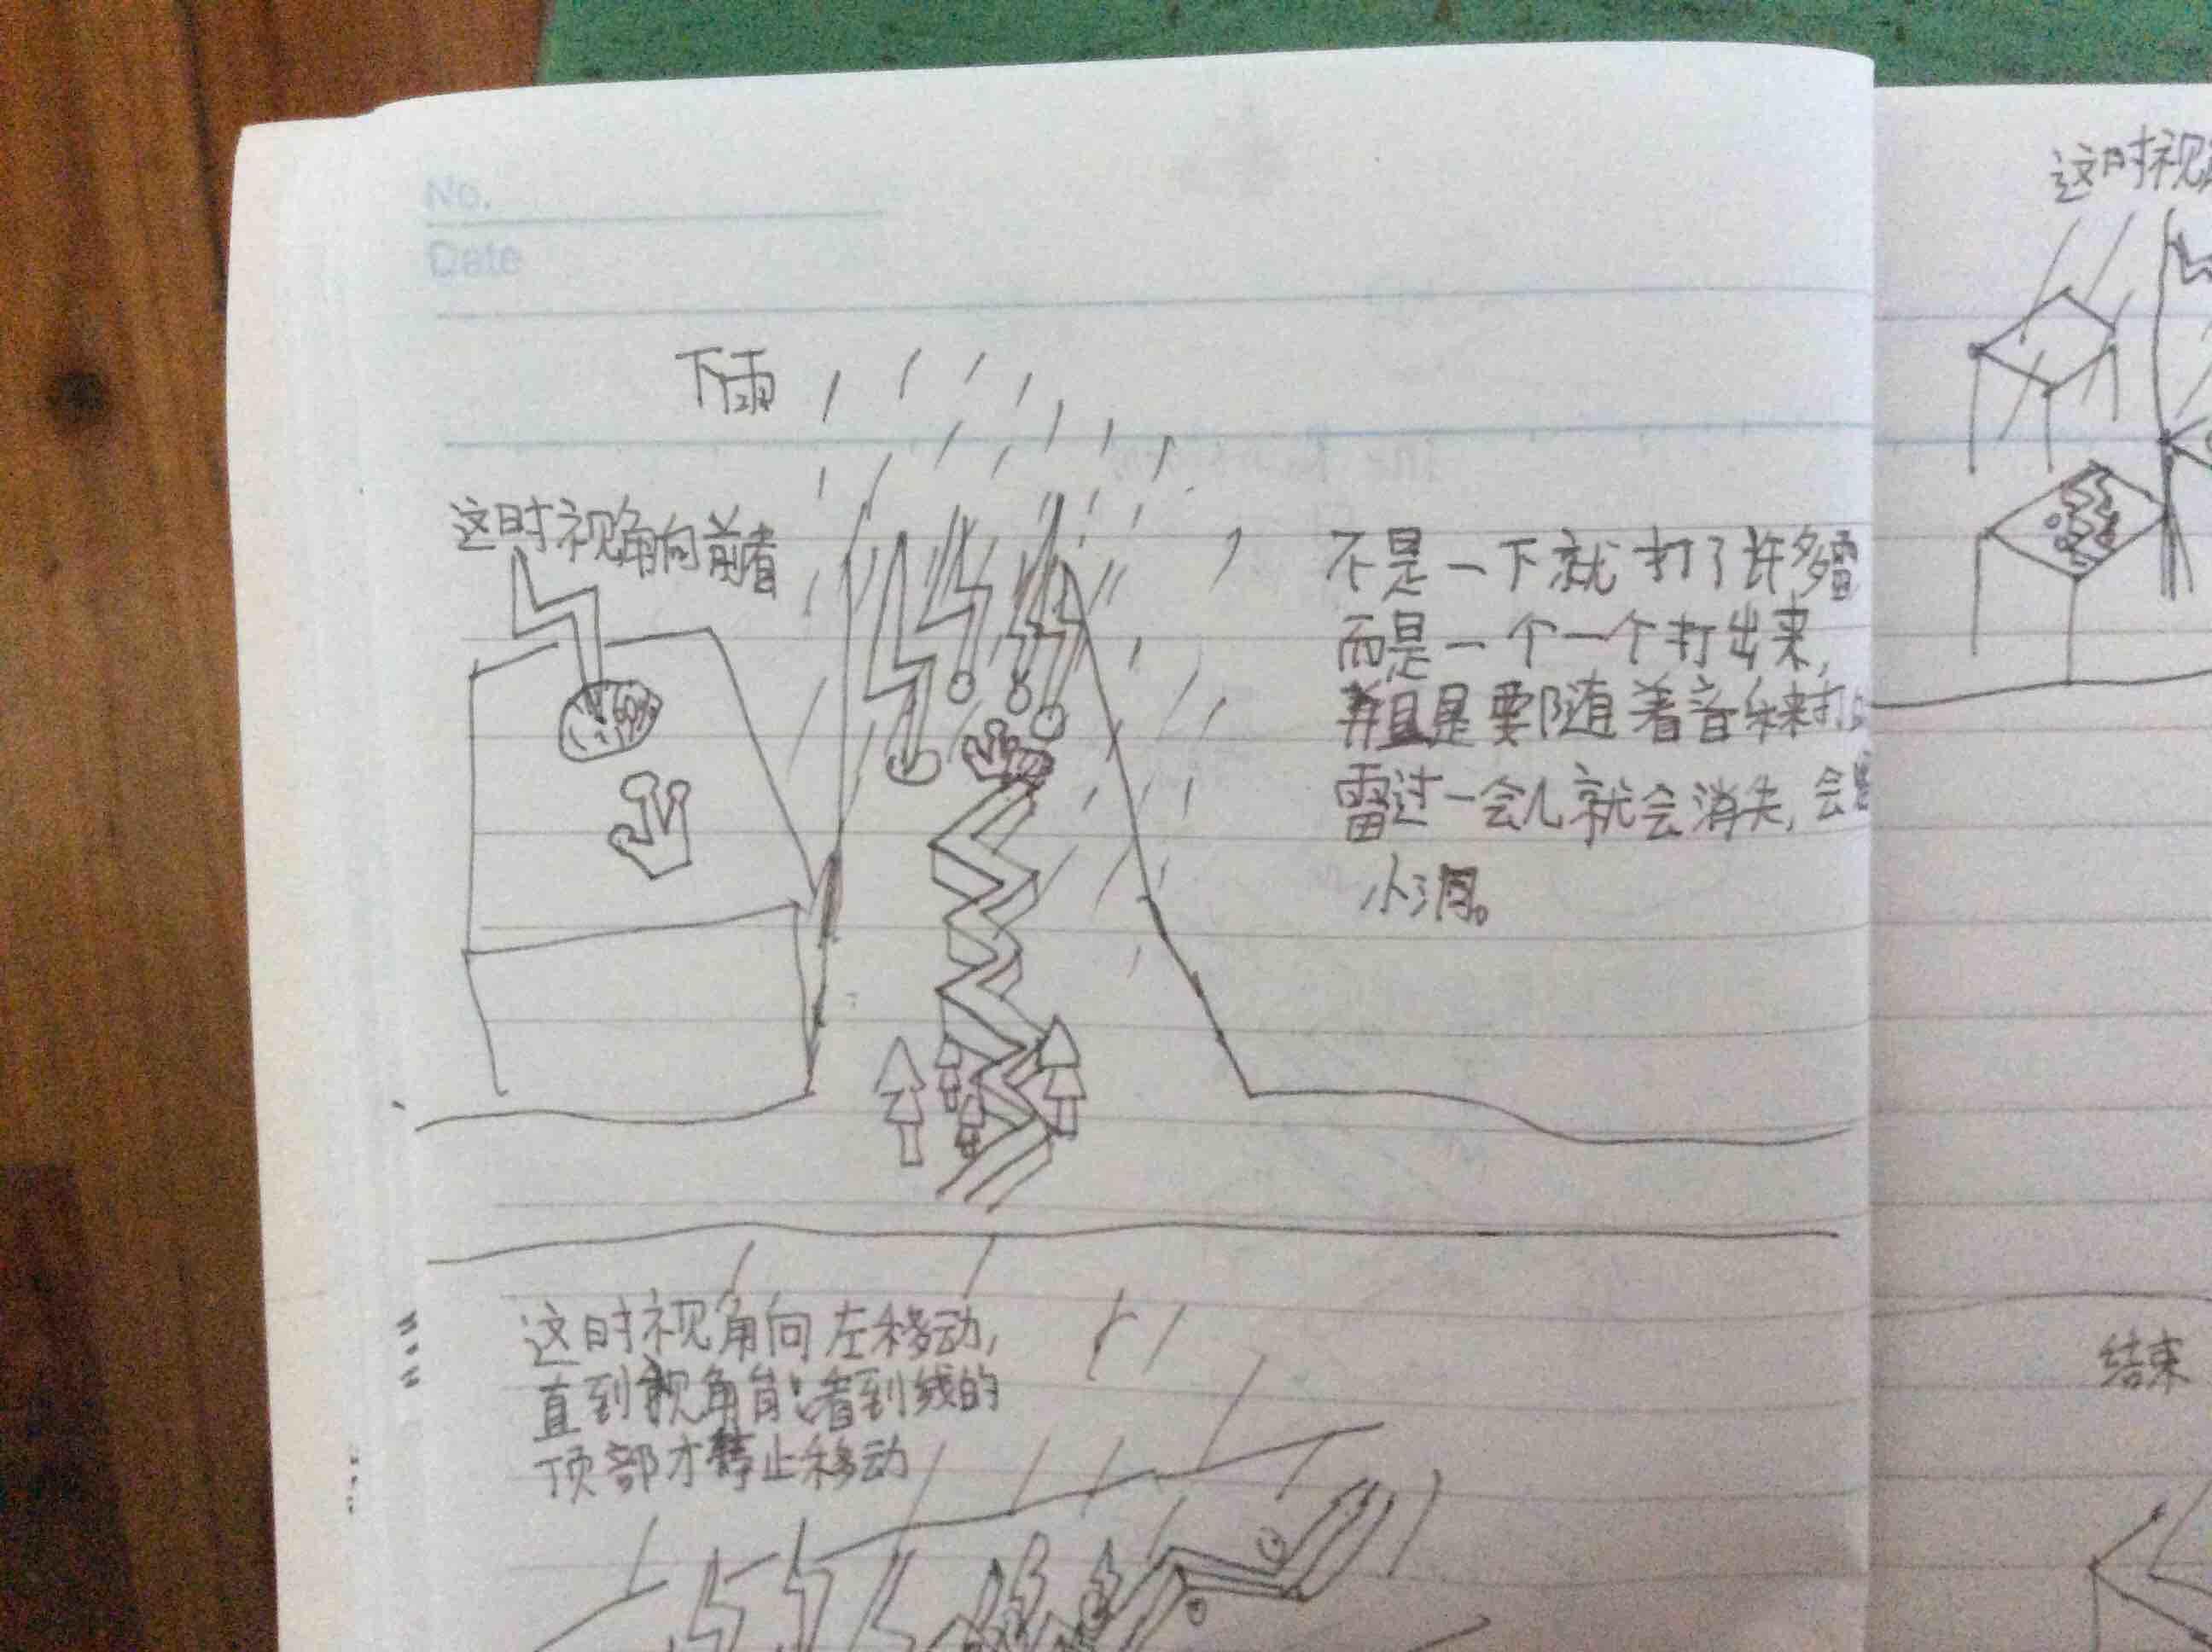 No.
Date
下雨
这时视角向前看
不是一下就打了许多雷
而是一个一个打出来,
并且是要随着音乐来打
雷过一会儿就会消失,会
小洞。
这时视角向左移动,
直到视角能看到线的
顶部才停止移动
这时视
结束